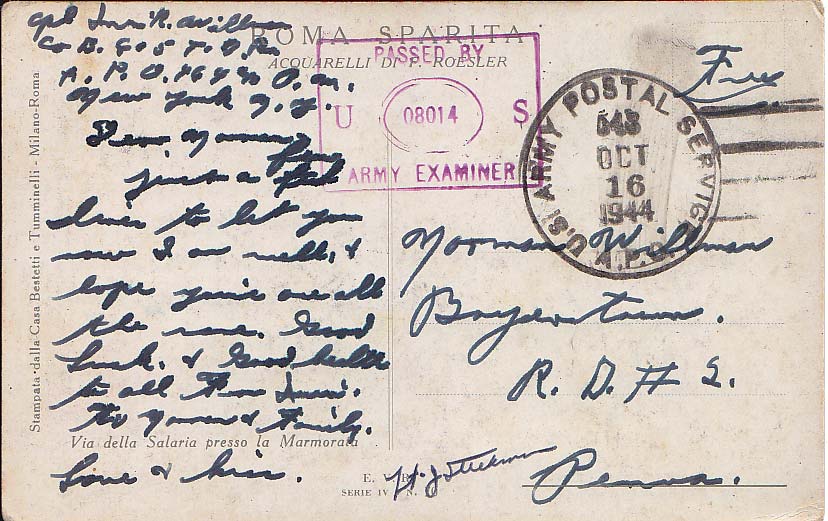 ROMA SPARITA
ACQUARELLI DI P. ROESLER
Cpl R. Willman
Co B. 805 T. D. Bn
A. P. O. 464 % P. M.
New York N. Y.
Dear Norman,
just a
lines to let you
now I am well, &
hope you're are all
the same. Good
Luck. & Good health
to all From
To Norman & Family.
Love & kiss.
Via della Salaria presso la Marmorata
Stampata dalla Casa Bestetti e Tumminelli - Milano-Roma
PASSED BY
U 08014 S
ARMY EXAMINER
Free
U.S. ARMY POSTAL SERVICE
A.P.O.
OCT
16
1944
Norman Willman
Boyertown.
R. D. # 2.
Penna.
E.
SERIE IV N.